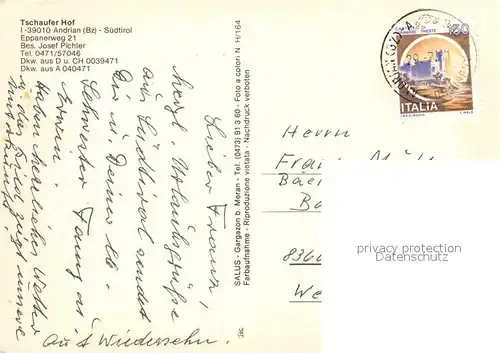 Tschaufer Hof
I-39010 Andrian (Bz) - Südtirol
Eppanerweg 21
Bes. Josef Pichler
Tel. 0471/57046
Dkw. aus D u. CH 0039471
Dkw. aus A 040471
Lieber Franz,
Herzl. Urlaubsgrüße
aus Südtirol sendet
Dir u. Deiner lb.
Schwester Fanny
Haben herrliches Wetter
u. das Bild zeigt unsere
Auf Wiedersehn.
SALUS - Gargazon b. Meran - Tel. (0473) 91 3 60 - Foto a colori N. H/164
Farbaufnahme - Riproduzione vietata - Nachdruck verboten
450
ITALIA
Herrn
Franz
8360
We
privacy protection
DARKPLACES.COM